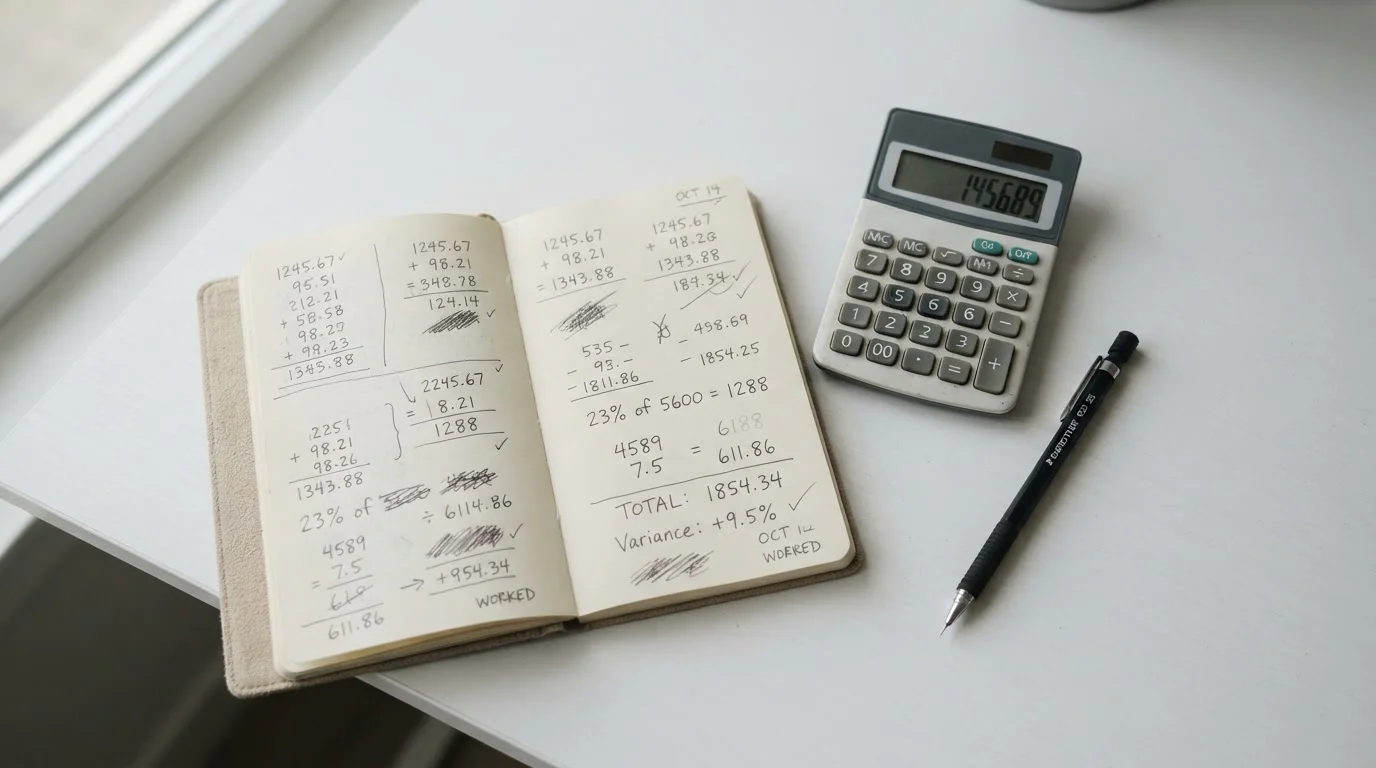 1245.67 ✓
95.51
212.21
+ 58.58
98.20
+ 99.23
1343.88
1245.67
+ 98.21
= 348.78
124.14
✓
2251
+ 98.21
98.26
1343.88
2245.67
= 18.21
1288
✓
23% of
÷ 6114.86
4589
= 7.5
611.86
✓
→ +954.34
WORKED
OCT 14
1245.67
+ 98.21
= 1343.88
1245.67
1343.88
184.34 ✓
✓
535 -
- 93.-
- 1811.86
- 498.69
- 1854.25
23% of 5600 = 1288
4589
7.5
=
6188
611.86
TOTAL: 1854.34
Variance: +9.5% ✓
OCT
WORKED
145689
MC MC √ M1 ÷
7 8 9 9 ×
4 5 6 6 −
1 2 2 3 +
0 00 · =